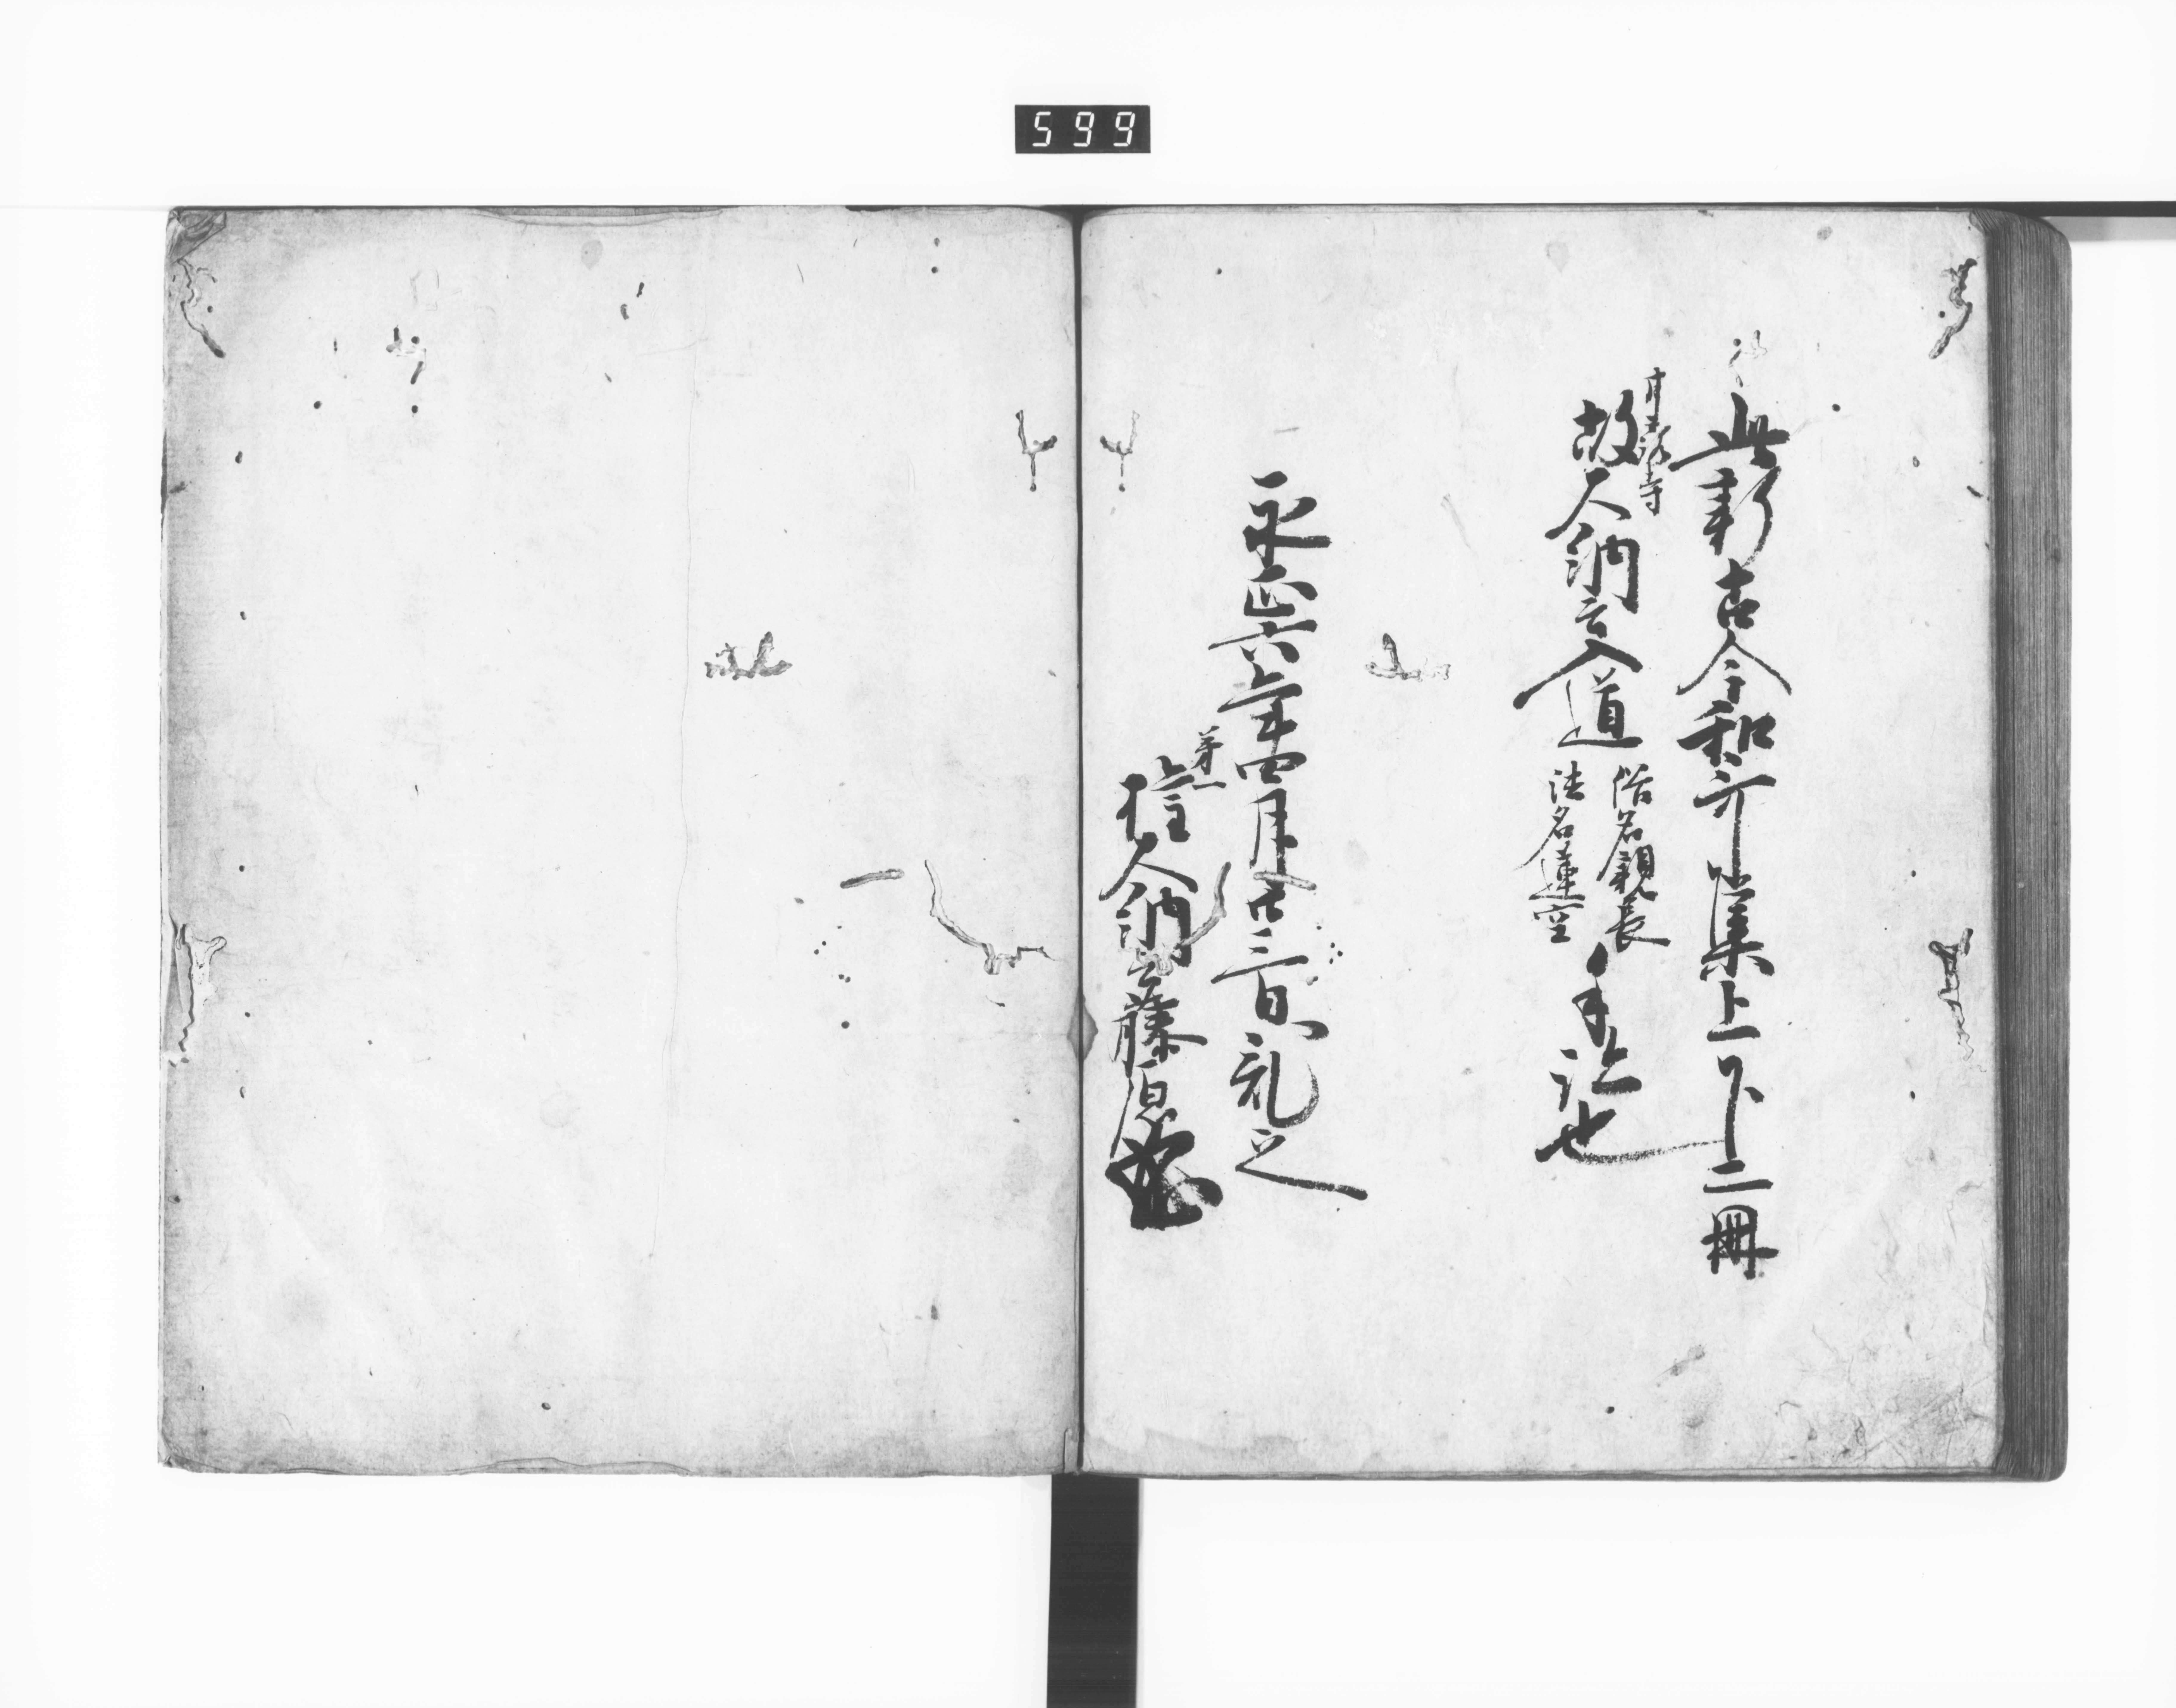 此新古今和哥集上下二冊
甘露寺
故大納言入道
俗名親長
法名蓮空
手跡也
永正六年四月廿三日礼之
大納言藤原
599